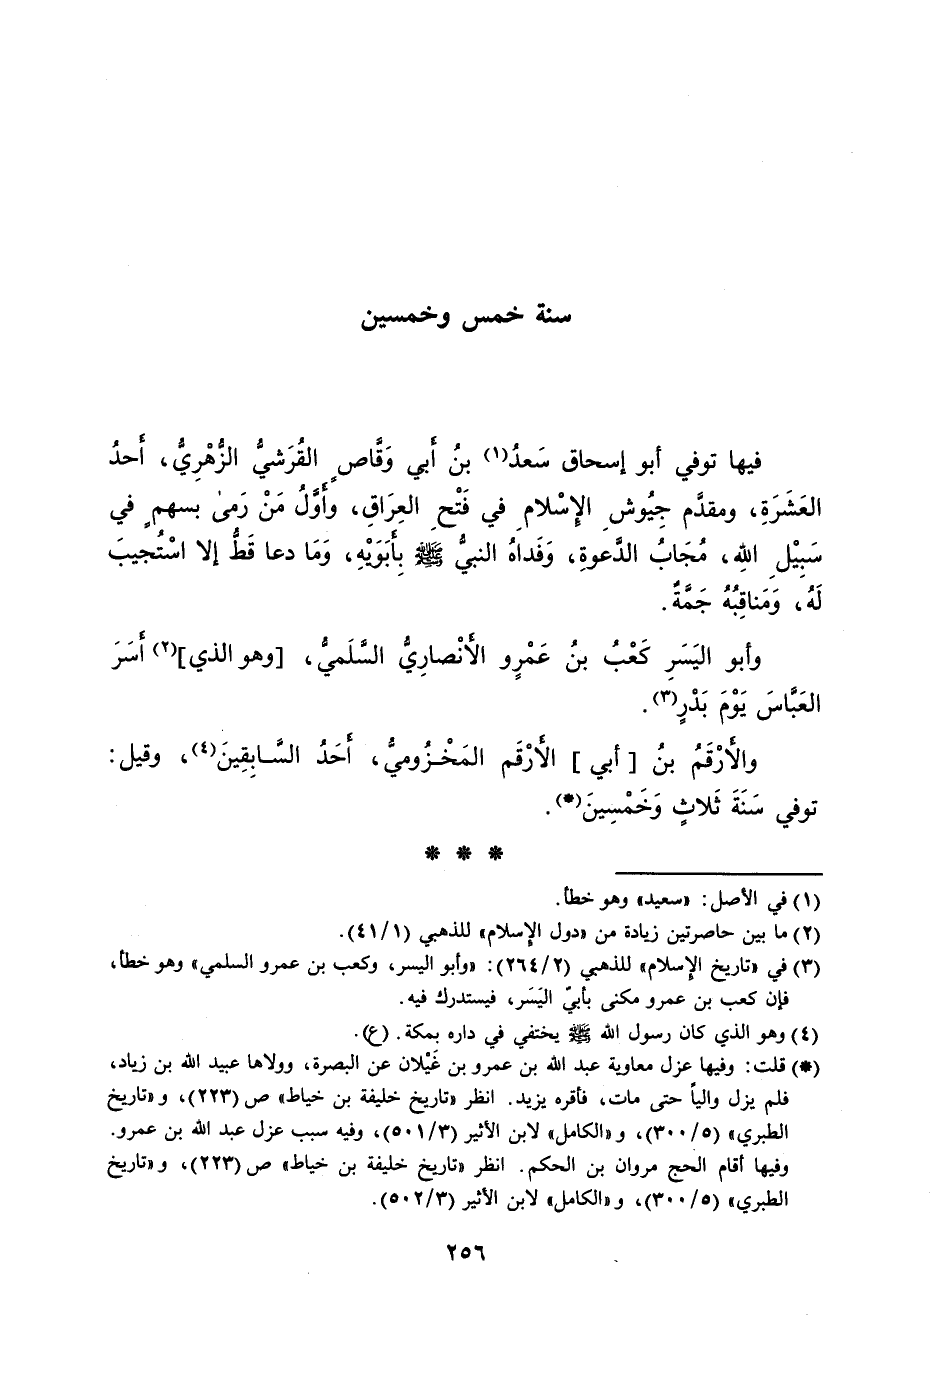 سنة خمس وخمسين
فيها توفي أبو إسحاق سَعدُ(١) بنُ أَبي وَقَّاصٍ القُرَشيُّ الزُّهْرِيُّ، أَحدُ
العَشَرَةِ، ومقدَّم جيُوشِ الإِسْلامِ في فَتْحِ العِرَاقِ، وأَوَّلُ مَنْ رَمىٰ بسهمٍ في
سَبِيْلِ اللهِ، مُجَابُ الدَّعوةِ، وَفَداهُ النبيُّ ﷺ بِأَبَوَيْهِ، وَمَا دعا قَطُّ إلا اسْتُجيبَ
لَهُ، وَمَناقِبُهُ جَمَّةٌ.
وأبو اليَسَرِ كَعْبُ بنُ عَمْرٍو الأَنْصاريُّ السَّلَميُّ، [وهو الذي](٢) أَسَرَ
العَبَّاسَ يَوْمَ بَدْرٍ(٣).
والأَرْقَمُ بنُ [ أبي ] الأَرْقَم المَخْزُوميُّ، أَحَدُ السَّابِقِينَ(٤)، وقيل:
توفي سَنَةَ ثَلاثٍ وَخَمْسِينَ(*).
* * *
(١) في الأصل: «سعيد» وهو خطأ.
(٢) ما بين حاصرتين زيادة من «دول الإسلام» للذهبي (٤١/١).
(٣) في «تاريخ الإسلام» للذهبي (٢٦٤/٢): «وأبو اليسر، وكعب بن عمرو السلمي» وهو خطأ،
فإن كعب بن عمرو مكنى بأبيّ اليَسَر، فيستدرك فيه.
(٤) وهو الذي كان رسول الله ﷺ يختفي في داره بمكة. (ع).
(*) قلت: وفيها عزل معاوية عبد الله بن عمرو بن غَيْلان عن البصرة، وولاها عبيد الله بن زياد،
فلم يزل والياً حتى مات، فأقره يزيد. انظر «تاريخ خليفة بن خياط» ص (٢٢٣)، و«تاريخ
الطبري» (٣٠٠/٥)، و«الكامل» لابن الأثير (٥٠١/٣)، وفيه سبب عزل عبد الله بن عمرو.
وفيها أقام الحج مروان بن الحكم. انظر «تاريخ خليفة بن خياط» ص (٢٢٣)، و«تاريخ
الطبري» (٣٠٠/٥)، و«الكامل» لابن الأثير (٥٠٢/٣).
٢٥٦